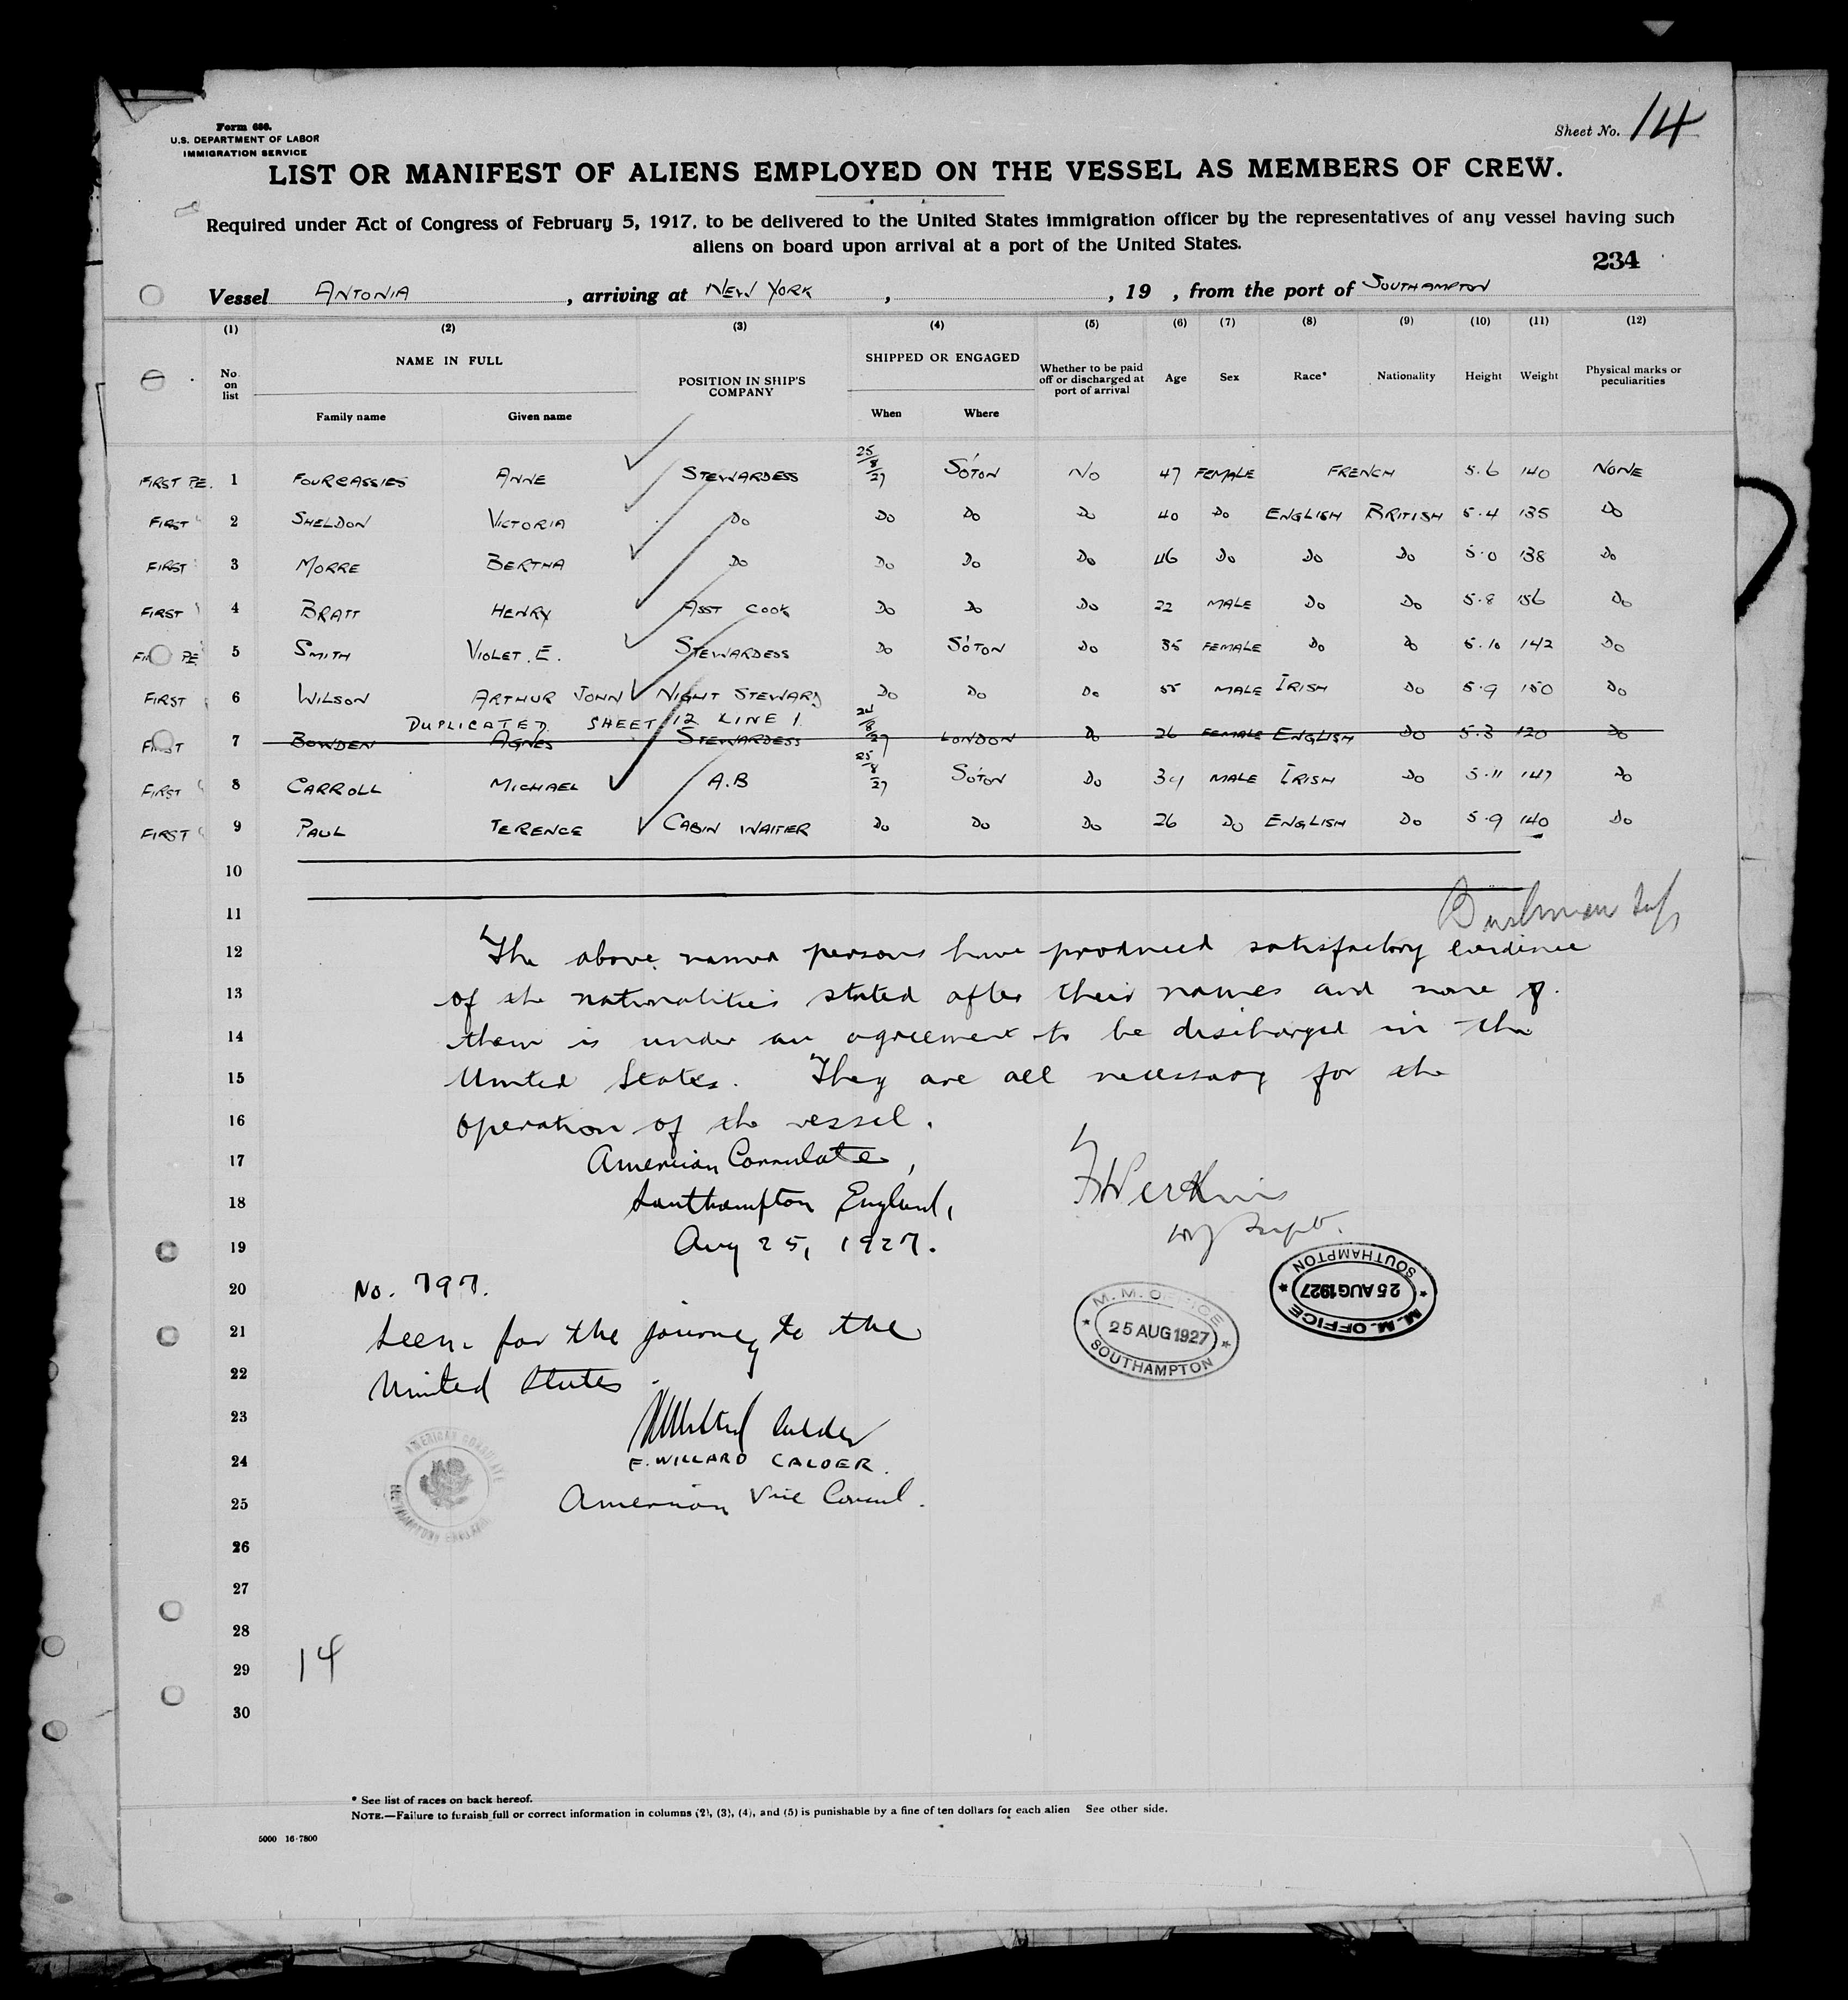 Form 686.
U.S. DEPARTMENT OF LABOR
IMMIGRATION SERVICE
Sheet No. 14
LIST OR MANIFEST OF ALIENS EMPLOYED ON THE VESSEL AS MEMBERS OF CREW.
Required under Act of Congress of February 5, 1917, to be delivered to the United States immigration officer by the representatives of any vessel having such
aliens on board upon arrival at a port of the United States.
234
Vessel ANTONIA, arriving at NEW YORK, , 19 , from the port of SOUTHAMPTON
(1) (2) (3) (4) (5) (6) (7) (8) (9) (10) (11) (12)
No. on list NAME IN FULL POSITION IN SHIP'S COMPANY SHIPPED OR ENGAGED Whether to be paid off or discharged at port of arrival Age Sex Race* Nationality Height Weight Physical marks or peculiarities
Family name Given name When Where
FIRST PE. 1 FOURCASSIES ANNE STEWARDESS 25/8/27 S'OTON NO 47 FEMALE FRENCH 5.6 140 NONE
FIRST 2 SHELDON VICTORIA DO DO DO DO 40 DO ENGLISH BRITISH 5.4 135 DO
FIRST 3 MORRE BERTHA DO DO DO DO 46 DO DO DO 5.0 138 DO
FIRST 4 BRATT HENRY ASST COOK DO DO DO 22 MALE DO DO 5.8 156 DO
PE 5 SMITH VIOLET. E. STEWARDESS DO S'OTON DO 35 FEMALE DO DO 5.10 142 DO
FIRST 6 WILSON ARTHUR JOHN NIGHT STEWARD DO DO DO 55 MALE IRISH DO 5.9 150 DO
DUPLICATED SHEET 12 LINE 1.
FIRST 7 BOWDEN AGNES STEWARDESS 24/8/27 LONDON DO 26 FEMALE ENGLISH DO 5.3 120 DO
FIRST 8 CARROLL MICHAEL A.B 25/8/27 S'OTON DO 39 MALE IRISH DO 5.11 147 DO
FIRST 9 PAUL TERENCE CABIN WAITER DO DO DO 26 DO ENGLISH DO 5.9 140 DO
10
11
12 The above named persons have produced satisfactory evidence
13 of the nationalities stated after their names and none of
14 them is under an agreement to be discharged in the
15 United States. They are all necessary for the
16 operation of the vessel.
17 American Consulate,
18 Southampton England,
19 Aug 25, 1927.
Perkins
M.M. OFFICE
25 AUG 1927
SOUTHAMPTON
M.M. OFFICE
25 AUG 1927
SOUTHAMPTON
20 No. 797.
21 Seen for the journey to the
22 United States.
23 Willard Calder
24 F. WILLARD CALDER.
25 American Vice Consul.
AMERICAN CONSULATE
SOUTHAMPTON ENGLAND
26
27
28
29 14
30
* See list of races on back hereof.
NOTE.—Failure to furnish full or correct information in columns (2), (3), (4), and (5) is punishable by a fine of ten dollars for each alien See other side.
5000 16-7800